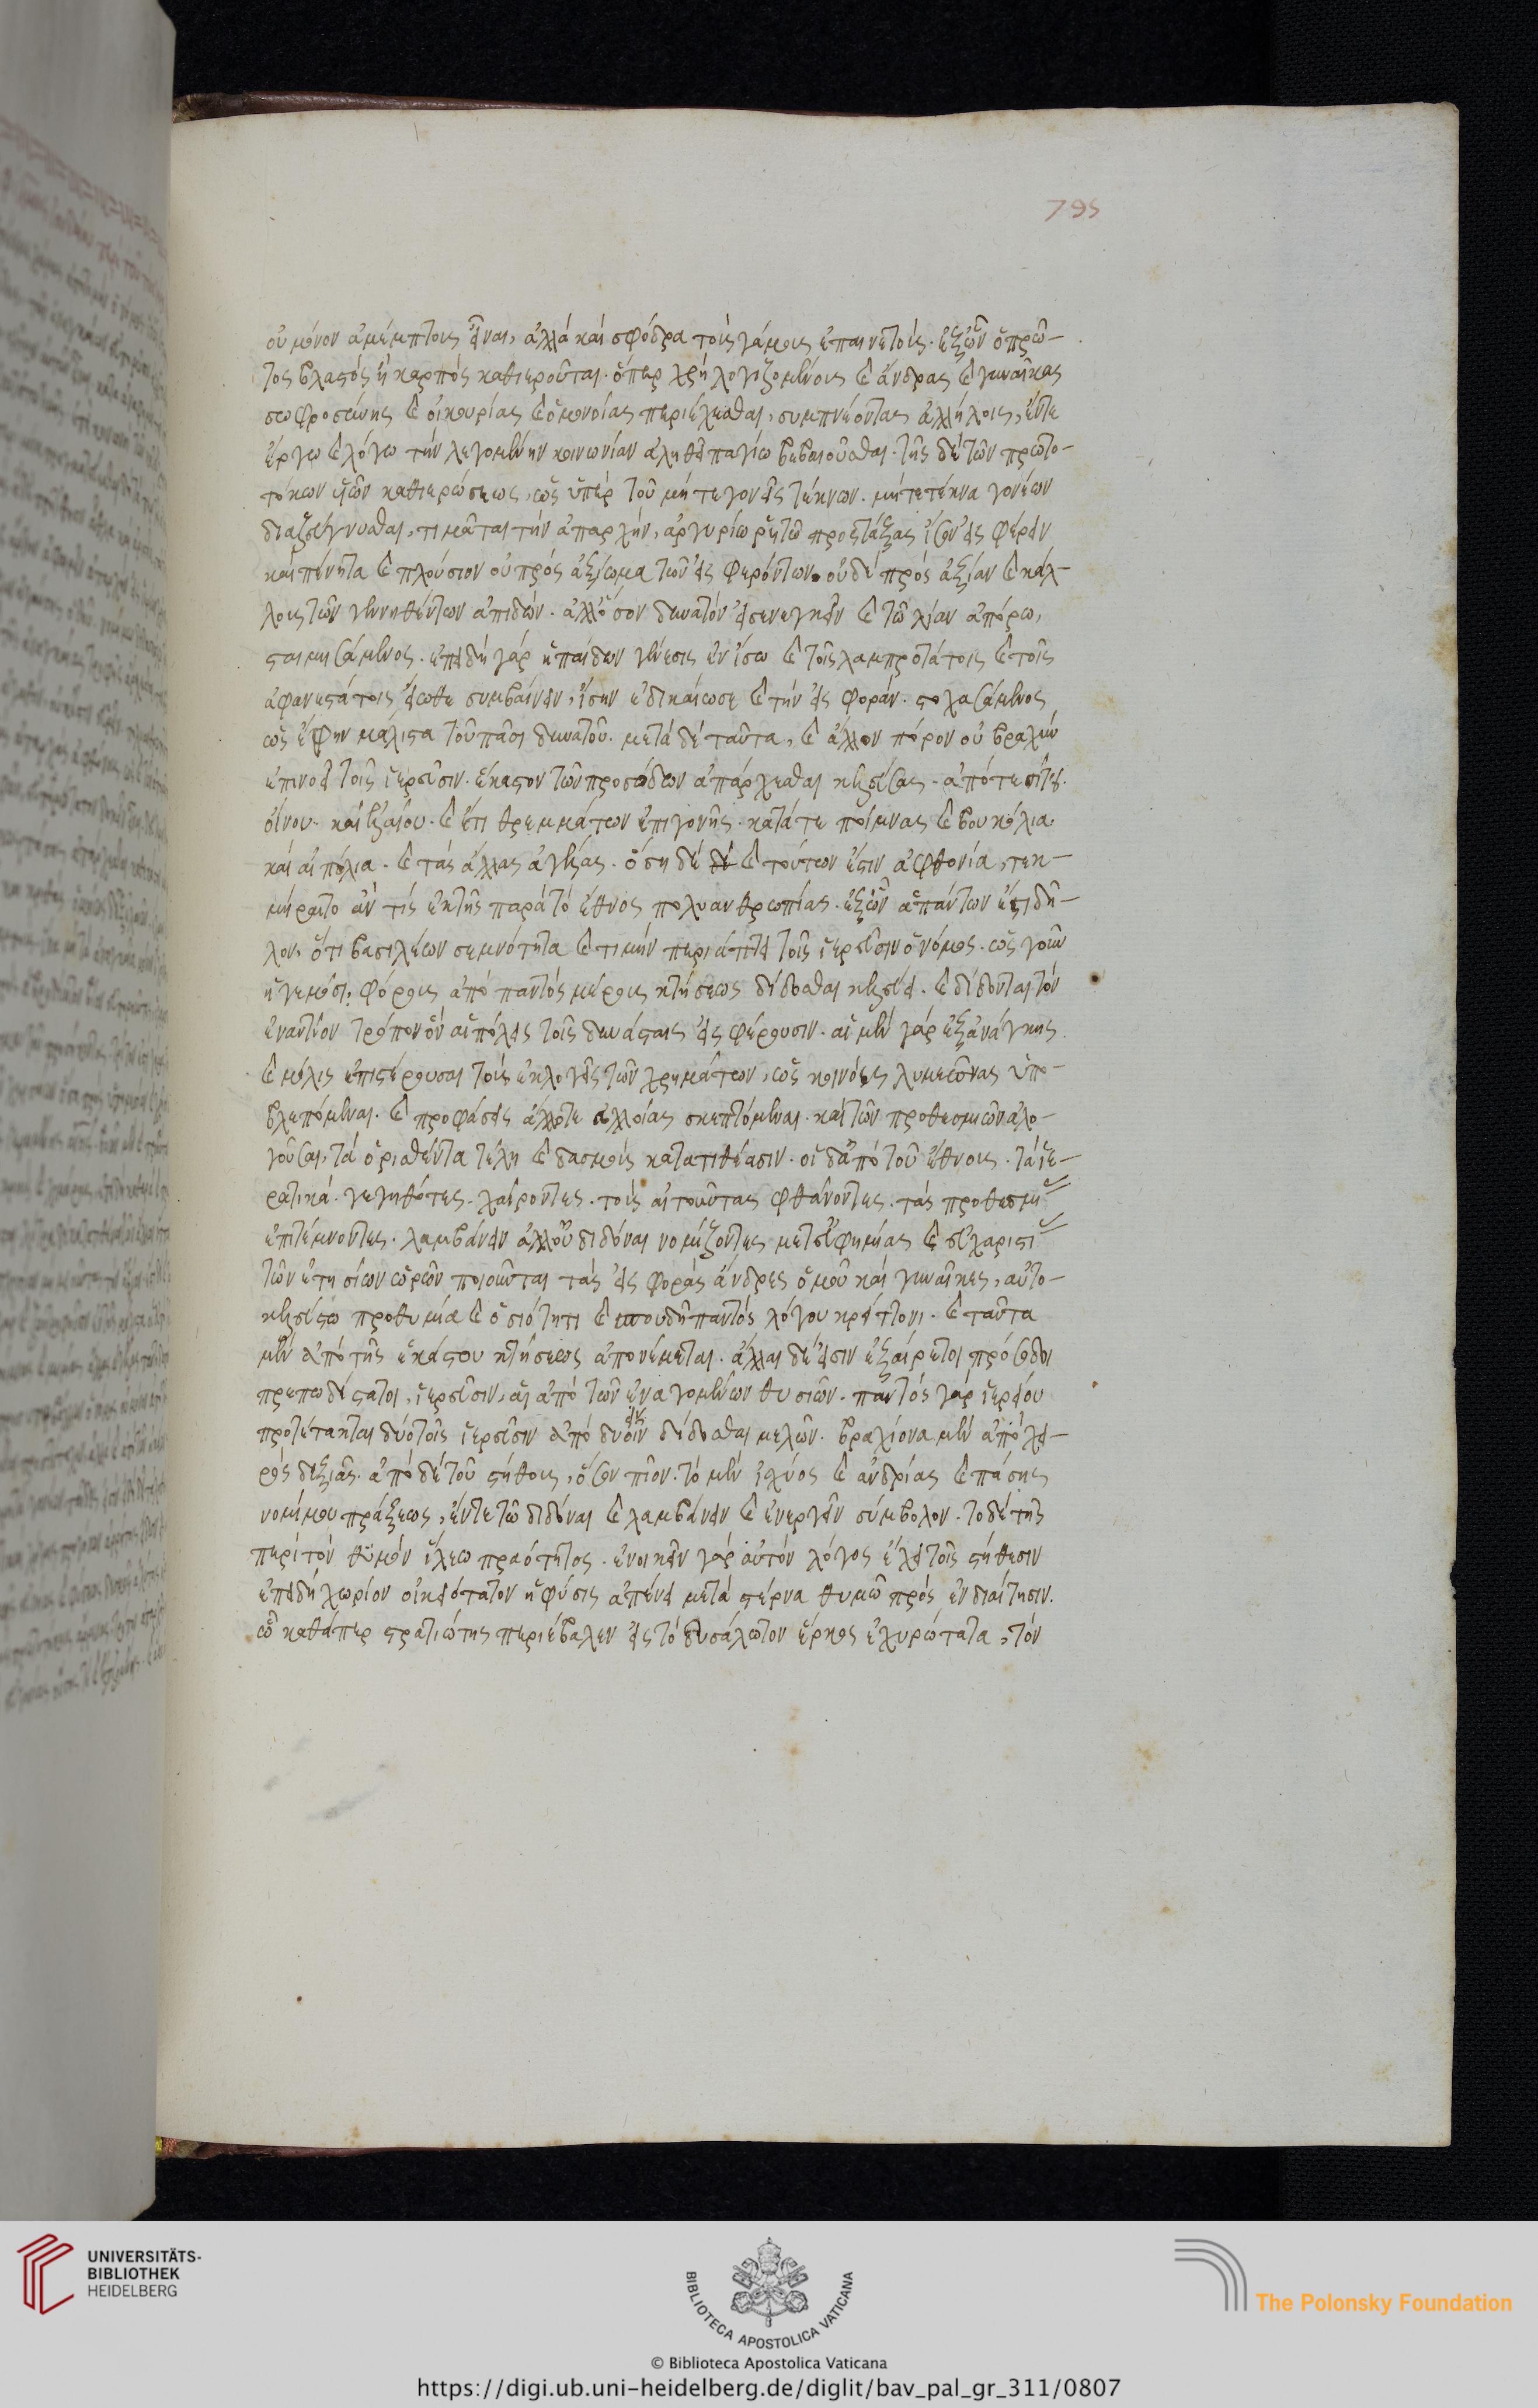 795
οὐ μόνον ἀμέμπτους εἶναι, ἀλλὰ καὶ σφόδρα τοὺς γάμους ἐπαινετούς. ἐξ ὧν ὁ πρῶ-
τος βλαστός ἢ καρπὸς καθιεροῦται. ὅπερ χρὴ λογιζομένους καὶ ἄνδρας καὶ γυναῖκας
σωφροσύνης καὶ οἰκουρίας καὶ ὁμονοίας περιέχεσθαι, συμπνέοντας ἀλλήλοις, ἔν τε
ἔργω καὶ λόγω τὴν λεγομένην κοινωνίαν ἀληθεῖ παγίω βεβαιοῦσθαι. τῆς δὲ τῶν πρωτο-
τόκων υἱῶν καθιερώσεως, ὡς ὑπὲρ τοῦ μήτε γονεῖς τέκνων. μήτε τέκνα γονέων
διαζεύγνυσθαι, τιμᾶται τὴν ἀπαρχήν, ἀργυρίω ῥητῶ προστάξας ἴσον εἰσφέρειν
καὶ πένητα καὶ πλούσιον οὐ πρὸς ἀξίωμα τῶν εἰσφερόντων. οὐδὲ πρὸς ἀξίαν καὶ κάλ-
λους τῶν γεννηθέντων ἀπιδών. ἀλλ' ὅσον δυνατὸν εἰσενεγκεῖν καὶ τῶ λίαν ἀπόρω,
σταμησάμενος. ἐπειδὴ γὰρ ἡ παίδων γένεσις ἐν ἴσω καὶ τοῖς λαμπροτάτοις καὶ τοῖς
ἀφανεστάτοις εἴωθε συμβαίνειν, ἴσην ἐδικαίωσε καὶ τὴν εἰσφοράν. στοχασάμενος
ὡς ἔφην μάλιστα τοῦ πᾶσι δυνατοῦ. μετὰ δὲ ταῦτα, καὶ ἄλλον πόρον οὐ βραχὺν
ἐπινοεῖ τοῖς ἱερεῦσιν. ἕκαστον τῶν προσόδων ἀπάρχεσθαι κελεύσας. ἀπό τε σίτου.
οἴνου. καὶ ἐλαίου. καὶ ἔτι θρεμμάτων ἐπιγονῆς. κατά τε ποίμνας καὶ βουκόλια.
καὶ αἰπόλια. καὶ τὰς ἄλλας ἀγέλας. ὅση δὲ καὶ τούτων ἐστὶν ἀφθονία, τεκ-
μήραιτο ἄν τις ἐκ τῆς παρὰ τὸ ἔθνος πολυανθρωπίας. ἐξ ὧν ἁπάντων ἐστὶ δῆ-
λον, ὅτι βασιλέων σεμνότητα καὶ τιμὴν περιάπτει τοῖς ἱερεῦσιν ὁ νόμος. ὡς γοῦν
ἡγεμόσι, φόρους ἀπὸ παντὸς μέρους κτήσεως δίδοσθαι κελεύει. καὶ δίδονται τὸν
ἐναντίον τρόπον ὃν αἱ πόλεις τοῖς δυνάσταις εἰσφέρουσιν. αἱ μὲν γὰρ ἐξ ἀνάγκης
καὶ μόλις ἐπιστέρουσαι τοὺς ἐκλογεῖς τῶν χρημάτων, ὡς κοινοὺς λυμεῶνας ὑπο-
βλεπόμεναι. καὶ προφάσεις ἄλλοτε ἀλλοίας σκεπτόμεναι. καὶ τῶν προθεσμιῶν ἀλο-
γοῦσαι, τὰ ὁρισθέντα τέλη καὶ δασμοὺς κατατιθέασιν. οἱ δ' ἀπὸ τοῦ ἔθνους. τὰ ἱε-
ρατικά. γεγηθότες. χαίροντες. τοὺς αἰτοῦντας φθάνοντες. τὰς προθεσμίας
ἐπιτέμνοντες. λαμβάνειν ἀλλ' οὐ διδόναι νομίζοντες μετ' εὐφημίας καὶ εὐχαριστίας
τῶν ἐτησίων ὡρῶν ποιοῦνται τὰς εἰσφορὰς ἄνδρες ὁμοῦ καὶ γυναῖκες, αὐτο-
κελεύστω προθυμία καὶ ὁσιότητι καὶ σπουδῇ παντὸς λόγου κρείττονι. καὶ ταῦτα
μὲν ἀπὸ τῆς ἑκάστου κτήσεως ἀπονέμεται. ἄλλαι δέ εἰσιν ἐξαίρετοι πρόσοδοι
πρεπωδέσταται, ἱερεῦσιν, αἱ ἀπὸ τῶν ἐναγομένων θυσιῶν. παντὸς γὰρ ἱερείου
προτέτακται δύο τοῖς ἱερεῦσιν ἀπὸ δυοῖν δίδοσθαι μελῶν. βραχίονα μὲν ἀπὸ χει-
ρὸς δεξιᾶς. ἀπὸ δὲ τοῦ στήθους, ὅσον πῖον. τὸ μὲν ἰσχύος καὶ ἀνδρίας καὶ πάσης
νομίμου πράξεως, ἔν τε τῶ διδόναι καὶ λαμβάνειν καὶ ἐνεργεῖν σύμβολον. τὸ δὲ τῆς
περὶ τὸν θυμὸν ἵλεω πραότητος. ἐνοικεῖν γὰρ αὐτὸν λόγος ἔχει τοῖς στήθεσιν
ἐπειδὴ χωρίον οἰκειότατον ἡ φύσις ἀπένειμε τὰ στέρνα θυμῶ πρὸς ἐνδιαίτησιν.
ὧ καθάπερ στρατιώτης περιέβαλεν εἰς τὸ δυσάλωτον ἕρκος ἐχυρώτατα, τὸν
UNIVERSITÄTS-
BIBLIOTHEK
HEIDELBERG
BIBLIOTECA APOSTOLICA VATICANA
© Biblioteca Apostolica Vaticana
The Polonsky Foundation
https://digi.ub.uni-heidelberg.de/diglit/bav_pal_gr_311/0807